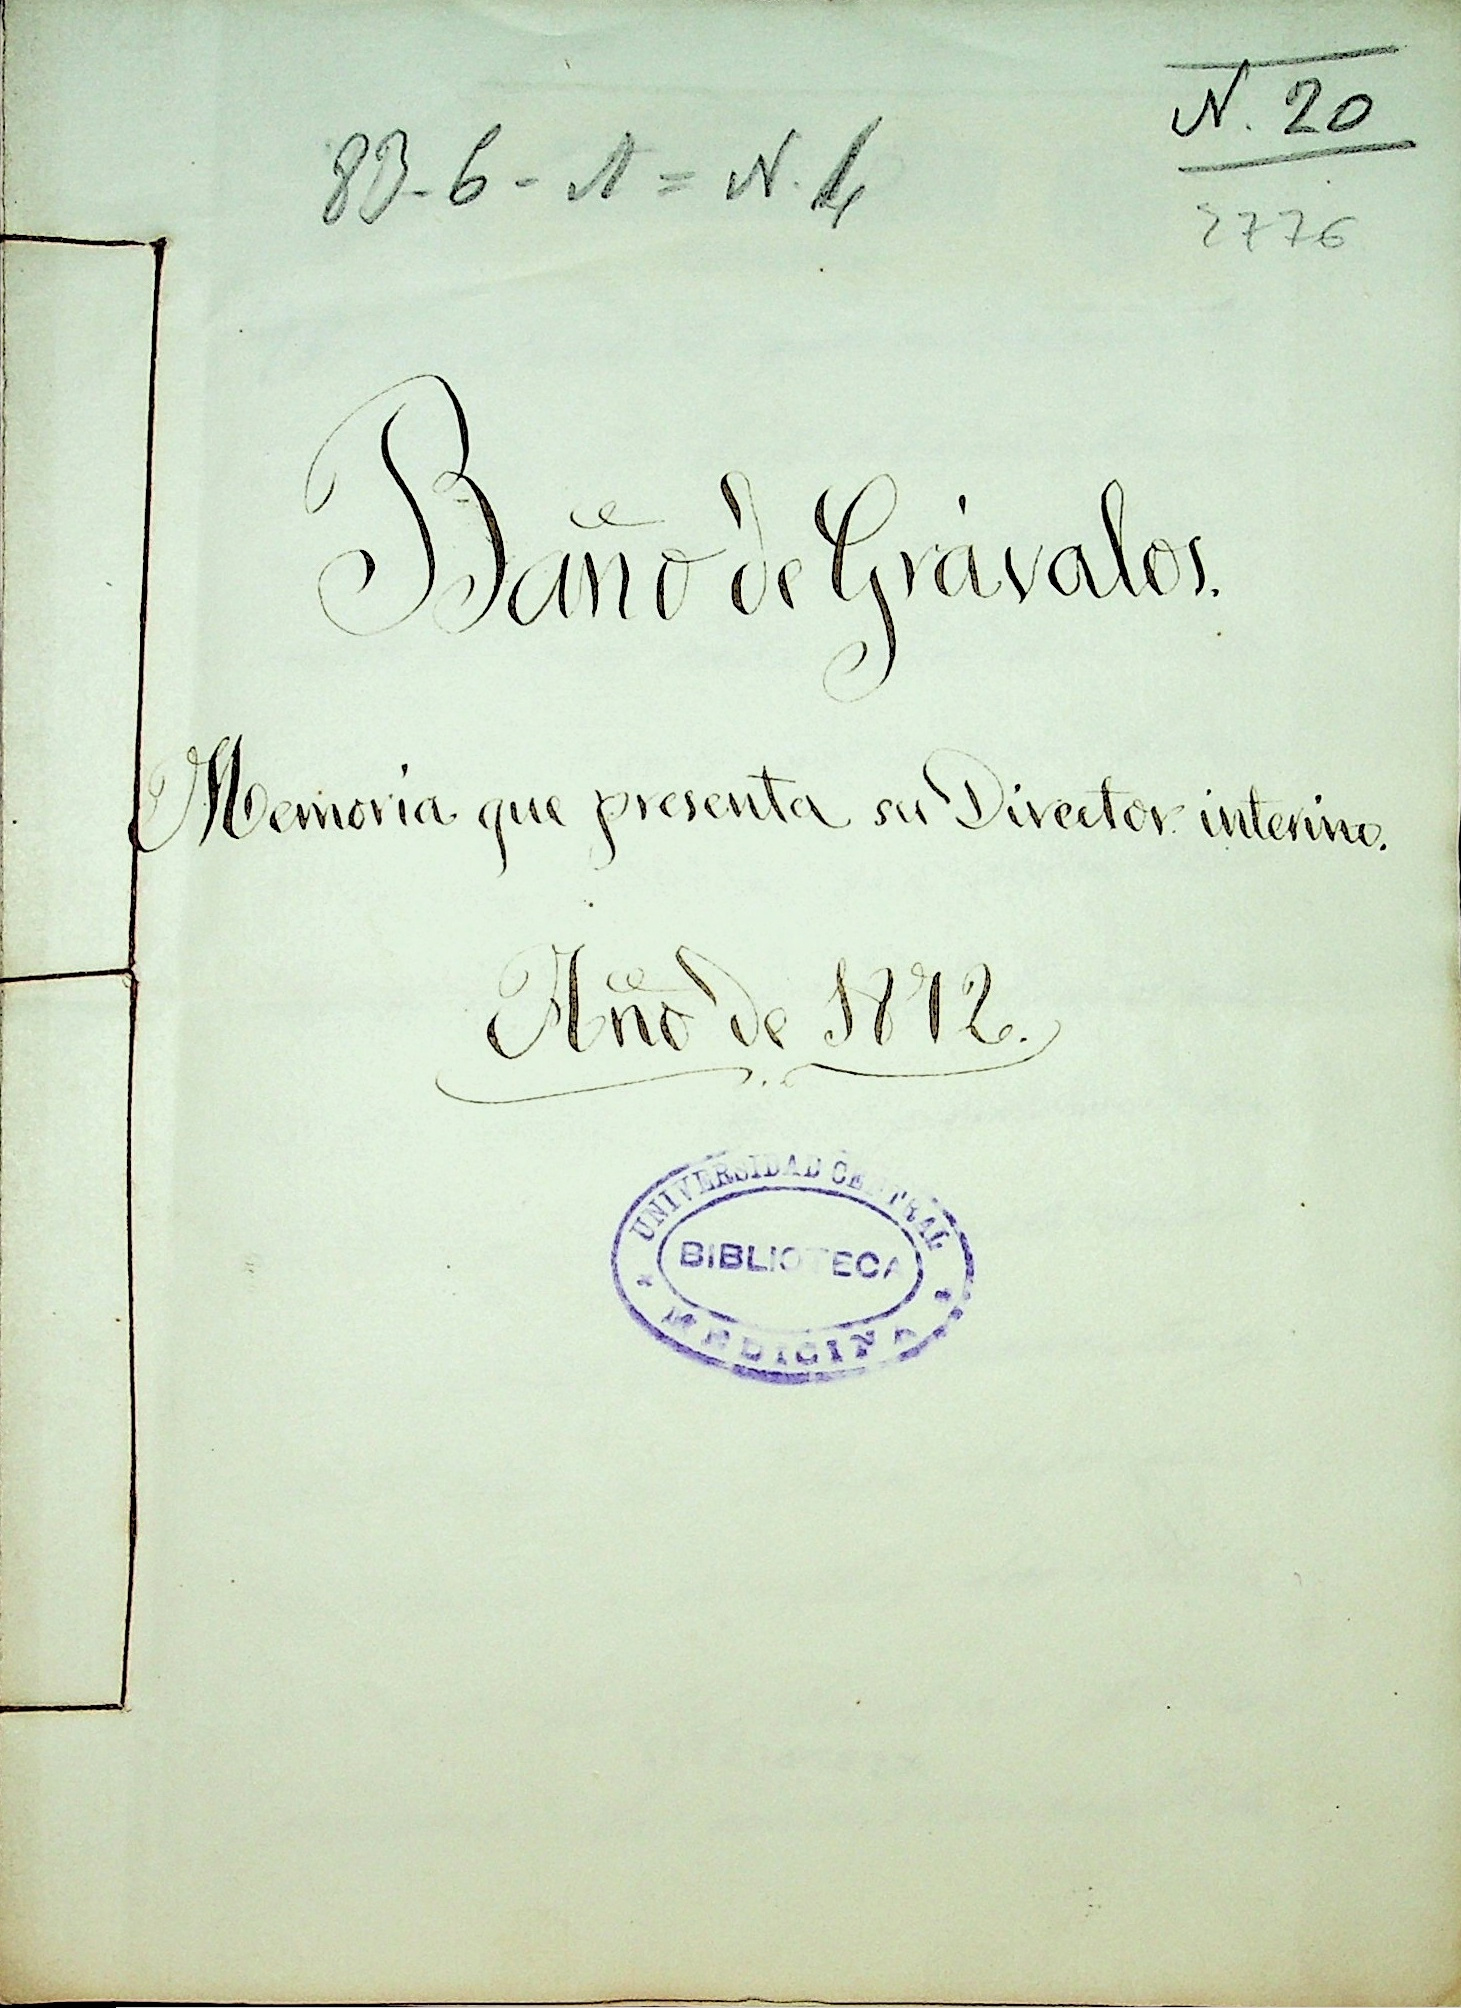 N. 20
83-6-A=N.4
2776
Baño de Grávalos.
Memoria que presenta su Director interino.
Año de 1872.
UNIVERSIDAD CENTRAL
BIBLIOTECA
MEDICINA